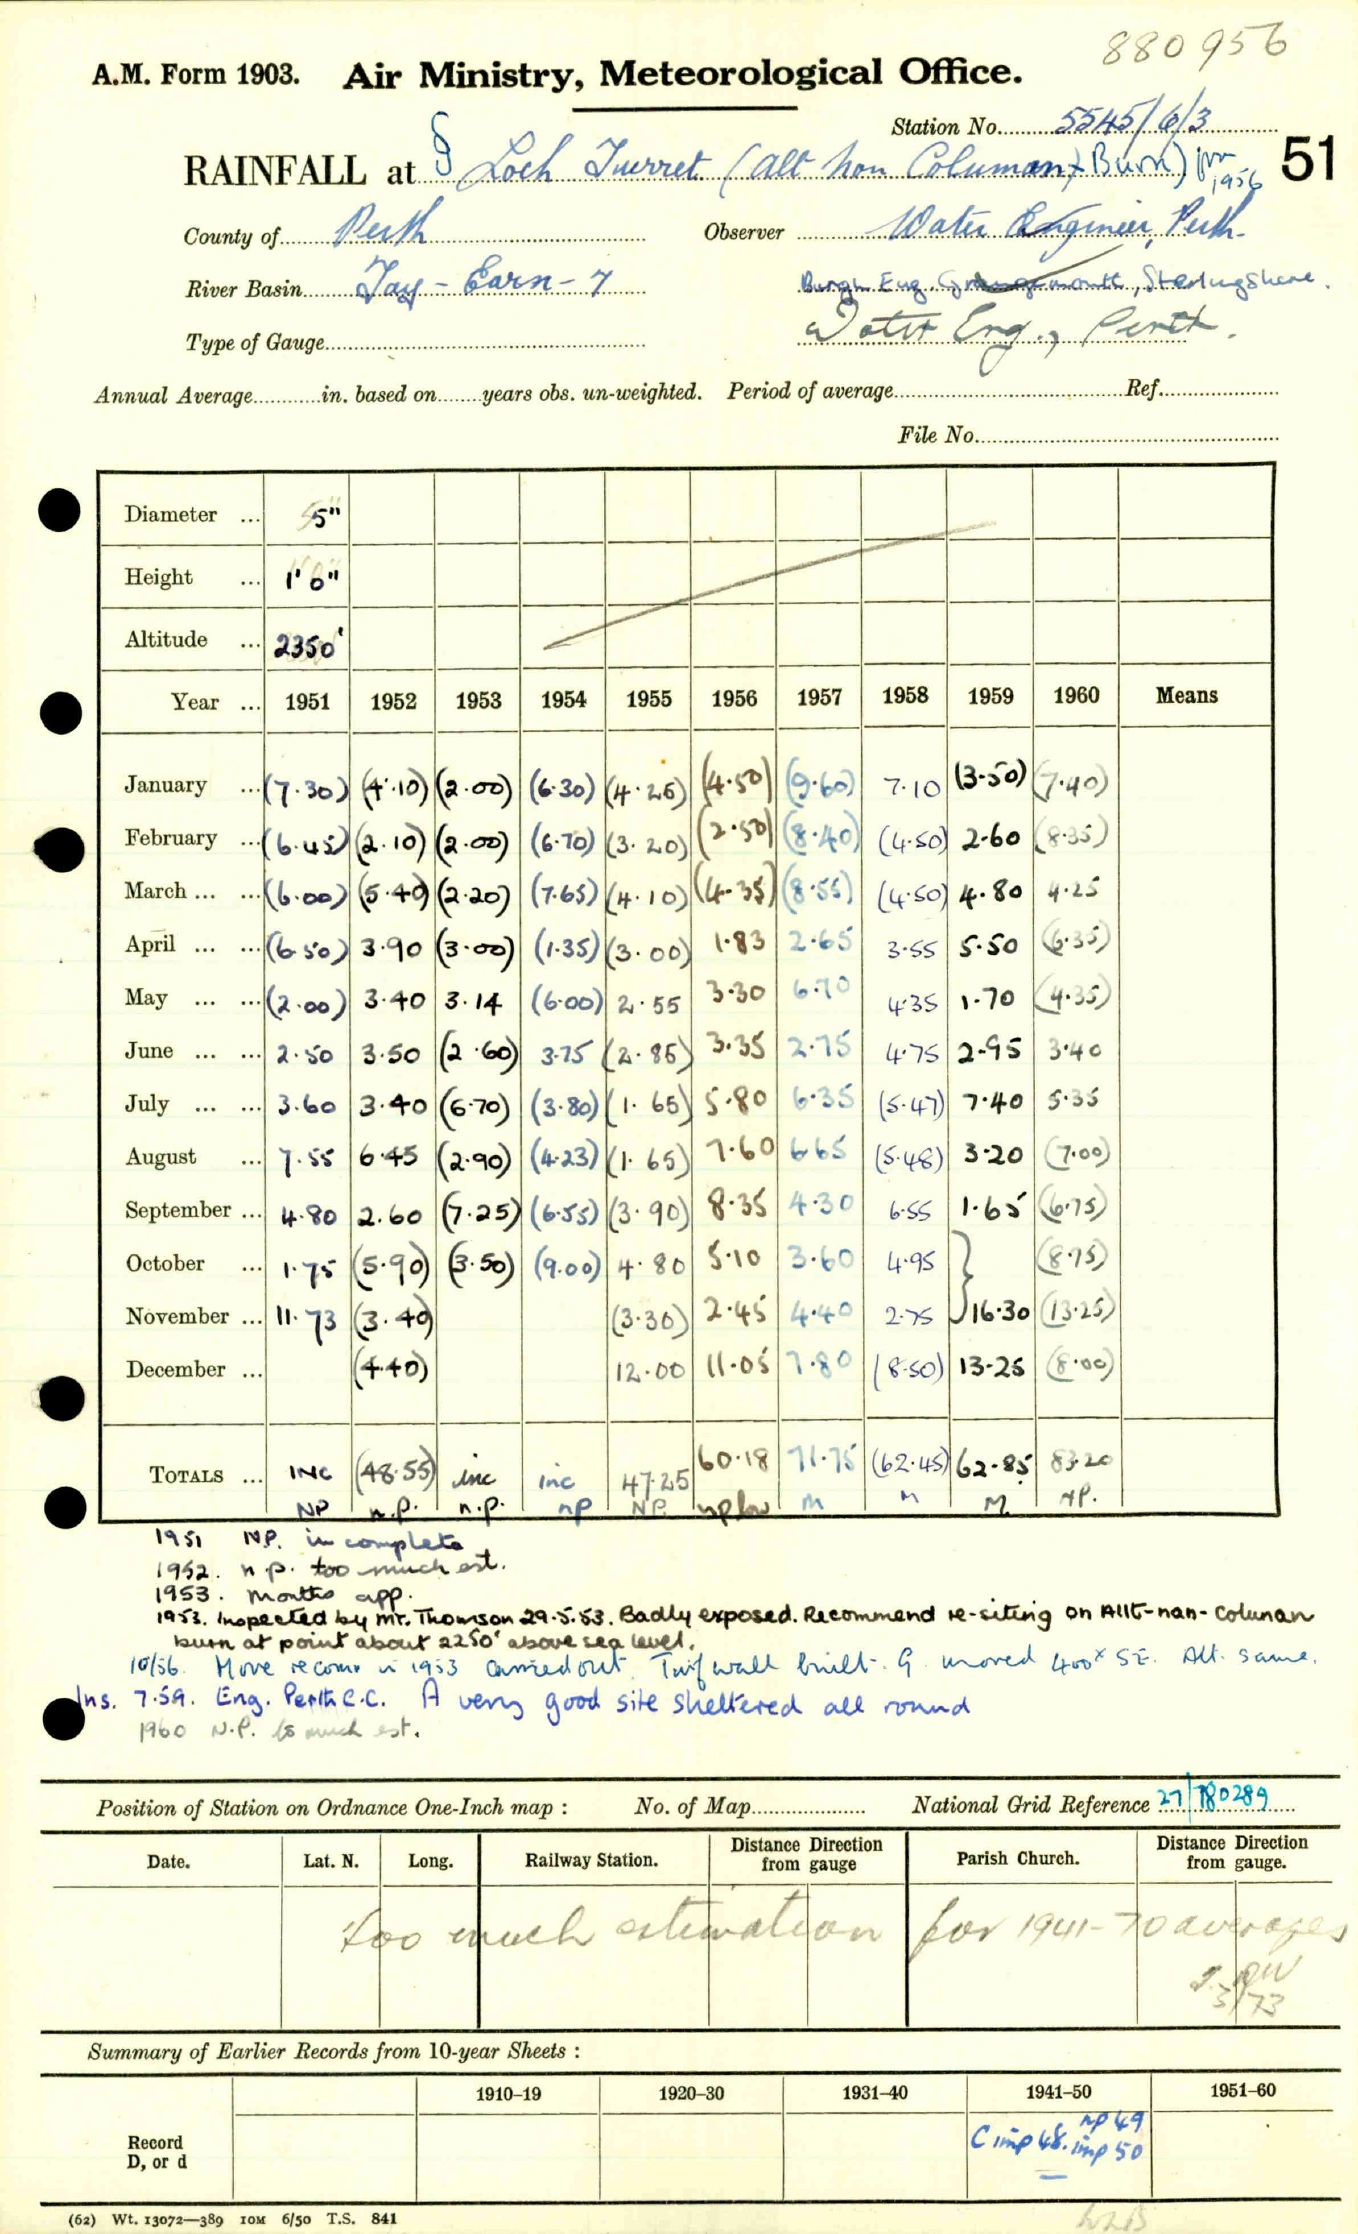 880956
A.M. Form 1903. Air Ministry, Meteorological Office.
Station No. 5545/6/3
RAINFALL at § Loch Turret (Allt nan Columan Burn) 1956 51
County of Perth Observer Water Engineer, Perth.
River Basin Tay - Earn - 7 Burgh Eng. Grangemouth, Stirlingshire.
Type of Gauge Water Eng., Perth.
Annual Average in. based on years obs. un-weighted. Period of average Ref.
File No.
Diameter ... 5"
Height ... 1' 0"
Altitude ... 2350'
Year ... 1951 1952 1953 1954 1955 1956 1957 1958 1959 1960 Means
January ... (7.30) (4.10) (2.00) (6.30) (4.25) (4.50) (9.60) 7.10 (3.50) (7.40)
February ... (6.45) (2.10) (2.00) (6.70) (3.20) (2.50) (8.40) (4.50) 2.60 (8.35)
March ... ... (6.00) (5.40) (2.20) (7.65) (4.10) (4.35) (8.55) (4.50) 4.80 4.25
April ... ... (6.50) 3.90 (3.00) (1.35) (3.00) 1.83 2.65 3.55 5.50 (6.35)
May ... ... (2.00) 3.40 3.14 (6.00) 2.55 3.30 6.70 4.35 1.70 (4.35)
June ... ... 2.50 3.50 (2.60) 3.75 (2.85) 3.35 2.75 4.75 2.95 3.40
July ... ... 3.60 3.40 (6.70) (3.80) (1.65) 5.80 6.35 (5.47) 7.40 5.35
August ... 7.55 6.45 (2.90) (4.23) (1.65) 7.60 6.65 (5.48) 3.20 (7.00)
September ... 4.80 2.60 (7.25) (6.55) (3.90) 8.35 4.30 6.55 1.65 (6.75)
October ... 1.75 (5.90) (3.50) (9.00) 4.80 5.10 3.60 4.95 } (8.75)
November ... 11.73 (3.40) (3.30) 2.45 4.40 2.75 16.30 (13.25)
December ... (4.40) 12.00 11.05 7.80 (8.50) 13.25 (8.00)
TOTALS ... INC (48.55) inc inc 47.25 60.18 71.75 (62.45) 62.85 83.20
NP n.p. n.p. np NP. np low M M M NP.
1951 N.P. incomplete
1952. n.p. too much est.
1953. Months app.
1953. Inspected by Mr. Thomson 29.5.53. Badly exposed. Recommend re-siting on Allt-nan-Colunan
burn at point about 2250' above sea level.
10/56. Move recomm in 1953 carried out. Turf wall built. G. moved 400x SE. Alt. same.
Ins. 7.59. Eng. Perth C.C. A very good site sheltered all round
1960 N.P. too much est.
Position of Station on Ordnance One-Inch map : No. of Map National Grid Reference 27/780289
Date. Lat. N. Long. Railway Station. Distance from gauge Direction Parish Church. Distance from gauge. Direction
too much estimation for 1941-70 averages
2/3/73
Summary of Earlier Records from 10-year Sheets :
1910–19 1920–30 1931–40 1941–50 1951–60
Record
D, or d
np 49
C imp 48. imp 50
(62) Wt. 13072—389 10M 6/50 T.S. 841